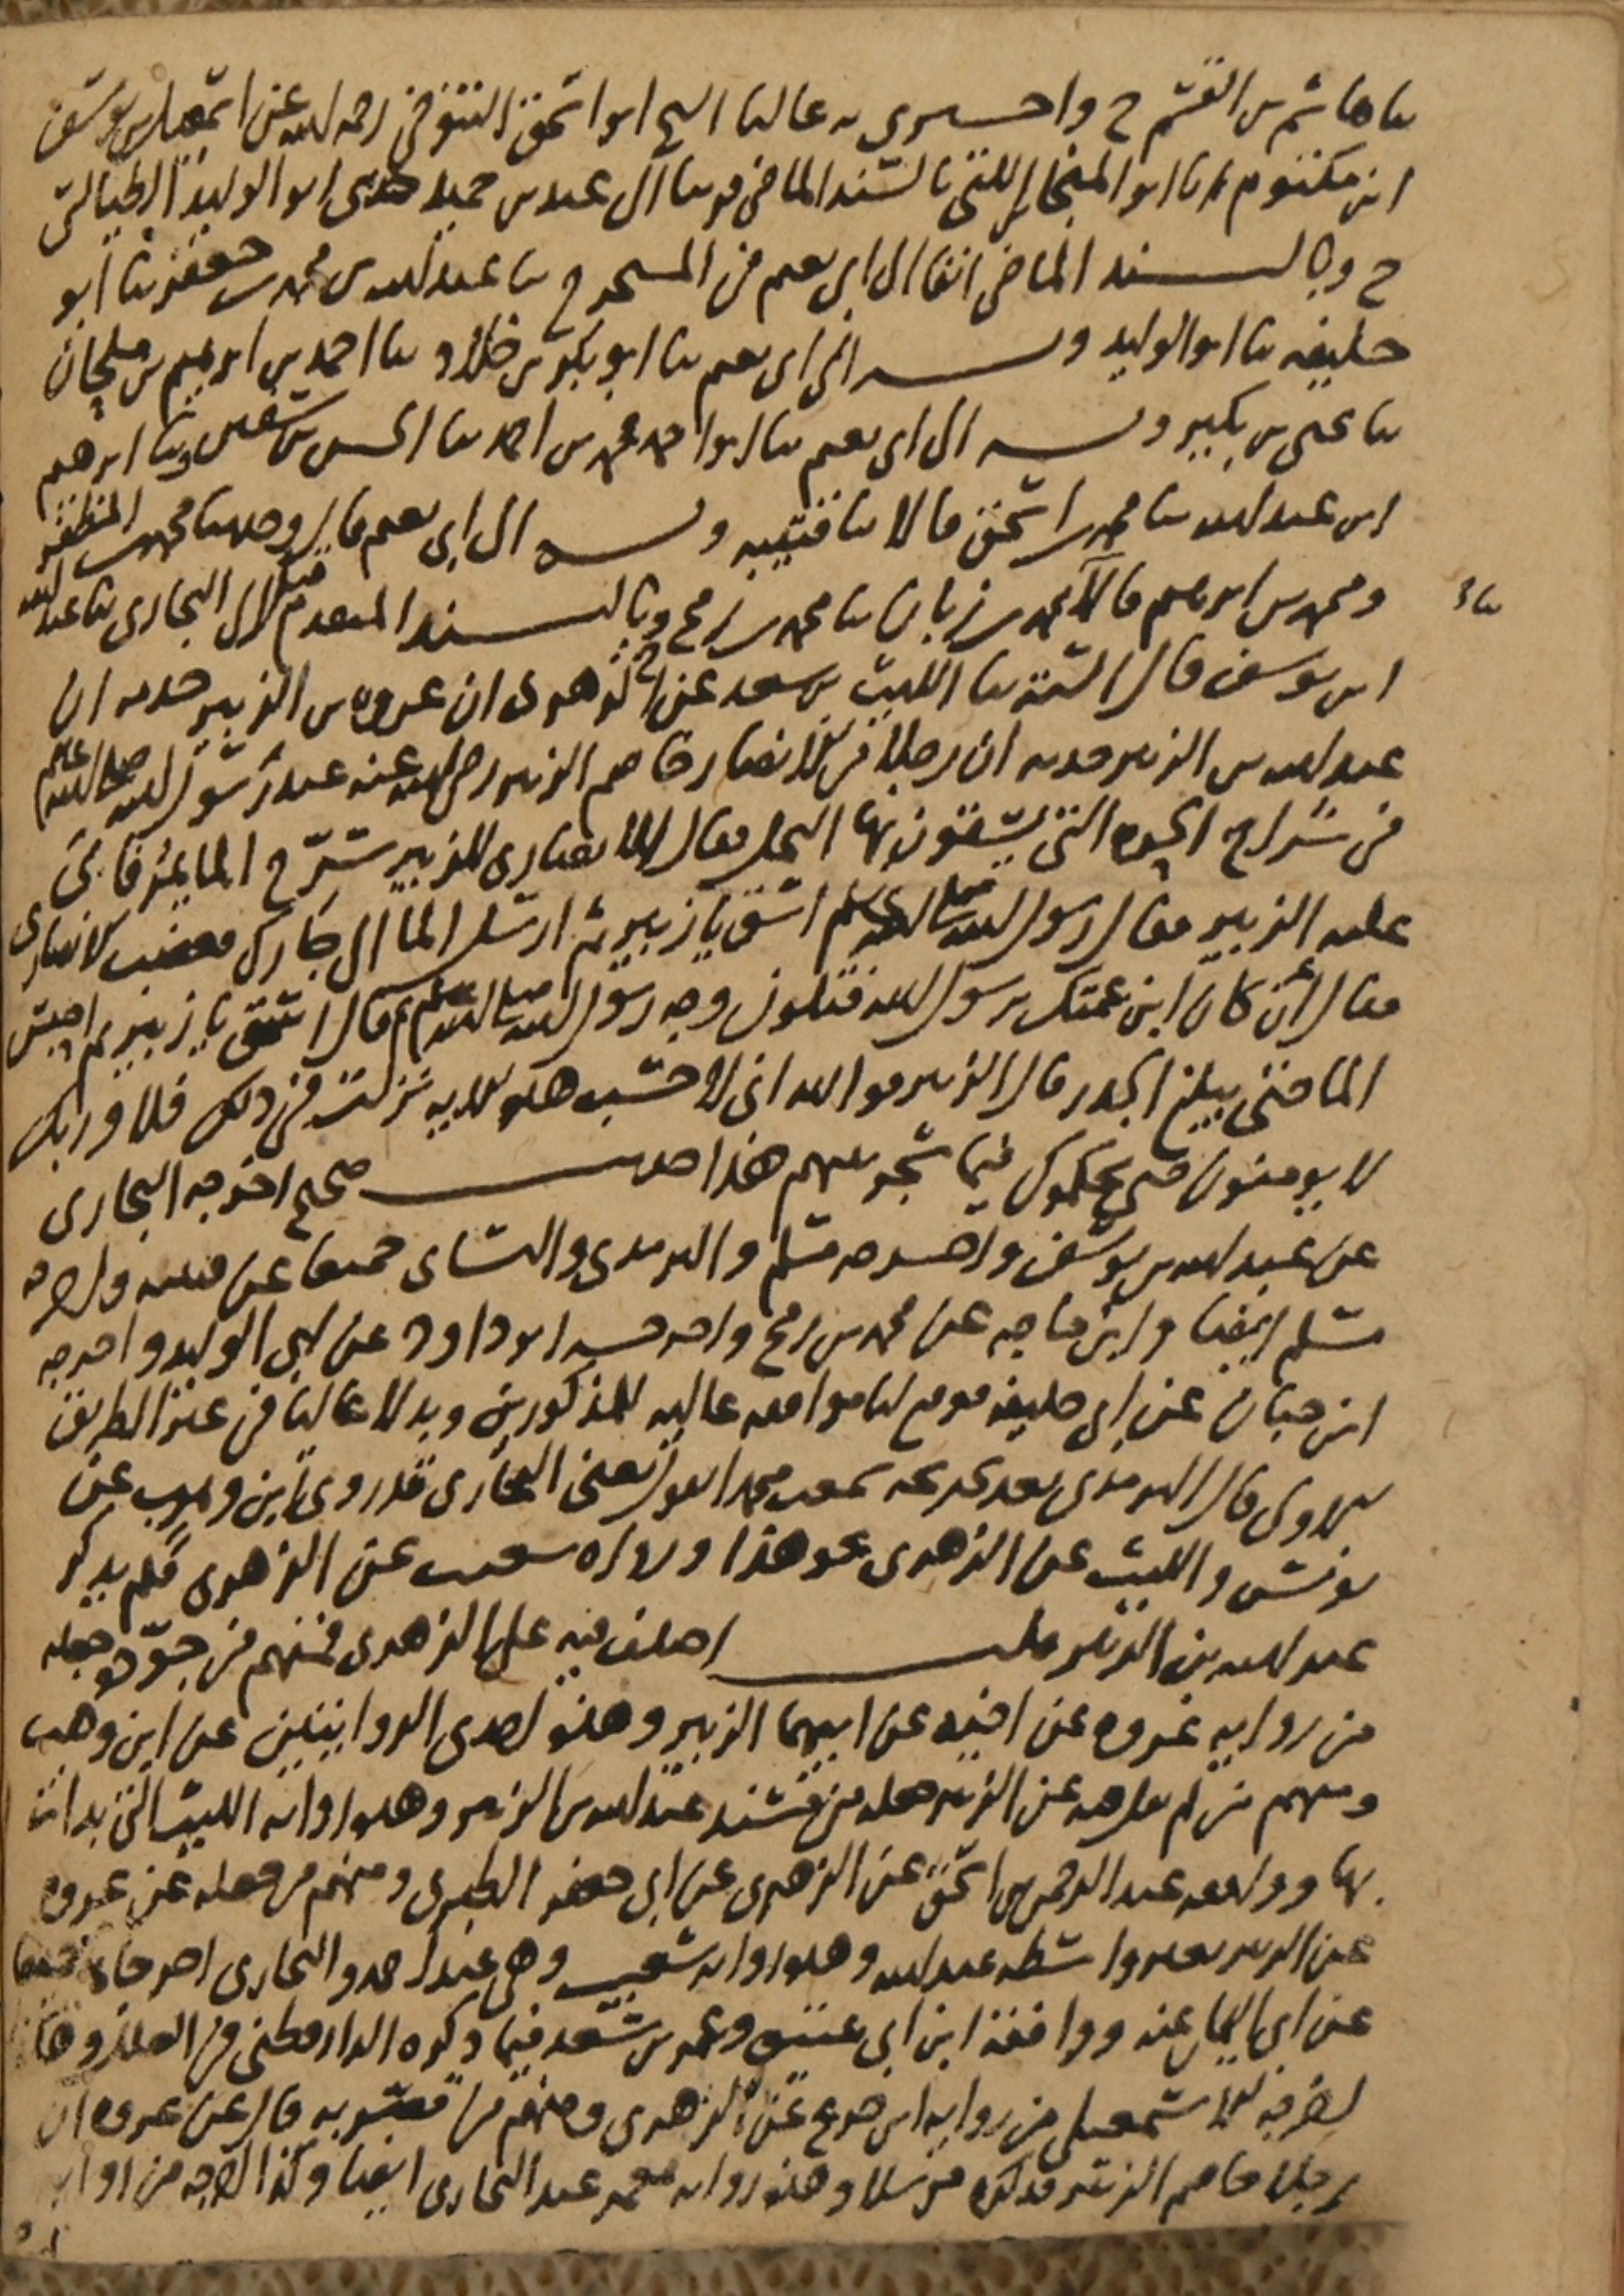 ثنا هاشم بن القسم ح واخبرني به عاليا الشيخ ابو اسحق التنوخي رحمه الله عن اسمعيل بن يوسف
ابن مكتوم انا ابو المنجا بن اللتي بالسند الماضي قريبا الى عبد بن حميد حدثني ابو الوليد الطيالسي
ح وبالسند الماضي انفا الى ابي نعيم في المستخرج ثنا عبد الله بن محمد بن جعفر ثنا ابو
خليفه ثنا ابو الوليد وبه الى ابي نعيم ثنا ابو بكر بن خلاد ثنا احمد بن ابرهيم بن ملحان
ثنا يحيى بن بكير وبه الى ابي نعيم ثنا ابو احمد محمد بن احمد ثنا الحسن بن سفين وثنا ابرهيم
ابن عبد الله ثنا محمد بن اسحق قالا ثنا قتيبه وبه الى ابي نعيم قال وحدثنا محمد بن المظفر
ومحمد بن ابرهيم قالا ثنا محمد بن زبان ثنا محمد بن رمح وبالسند المتقدم قبل الى البخاري ثنا عبد الله
ابن يوسف قال الستة ثنا الليث بن سعد عن الزهري ان عروه بن الزبير حدثه ان
عبد الله بن الزبير حدثه ان رجلا من الانصار خاصم الزبير رضي الله عنه عند رسول الله صلى الله عليه وسلم
في شراج الحره التي يسقون بها النخل فقال الانصاري للزبير سرح الما يمر فابى
عليه الزبير فقال رسول الله صلى الله عليه وسلم اسق يا زبير ثم ارسل الما الى جارك فغضب الانصاري
فقال أن كان ابن عمتك يرسول الله فتلون وجه رسول الله صلى الله عليه وسلم ثم قال اسق يا زبير ثم احبس
الما حتى يبلغ الجدر قال الزبير فوالله اني لاحسب هذه الايه نزلت في ذلك فلا وربك
لا يومنون حتى يحكموك فيما شجر بينهم هذا حديث صحيح اخرجه البخاري
عن عبد الله بن يوسف واخرجه مسلم والترمذي والنساي جميعا عن قتيبه واخرجه
مسلم ايضا وابن ماجه عن محمد بن رمح واخرجه ابو داود عن ابي الوليد واخرجه
ابن حبان عن ابي خليفه فوقع لنا موافقه عاليه للمذكورين وبدلا عاليا من عنز الطريق
الاولى قال الترمذي بعد تخريجه سمعت محمدا يقول يعني البخاري قد روى ابن وهب عن
يونس والليث عن الزهري نحو هذا ورواه شعيب عن الزهري فلم يذكر
عبد الله بن الزبير قلت اختلف فيه على الزهري فمنهم من جوده وجعله
من روايه عروه عن اخيه عن ابيهما الزبير وهذه احدى الروايتين عن ابن وهب
ومنهم من لم يقل فيه عن الزبير جعله من مسند عبد الله بن الزبير وهذه روايه الليث التي بدات
بها ووافقه عبد الرحمن بن اسحق عن الزهري عن ابي جعفر الطبري ومنهم من جعله عن عروه
عن الزبير بغير واسطه عبد الله وهذه روايه شعيب وهي عند احمد والبخاري اخرجاه جميعا
عن ابي اليمان عنه ووافقه ابن ابي عتيق وعمر بن سعد فيما ذكره الدارقطني في العلل
اخرجه الاسمعيلي من روايه ابن جريج عن الزهري ومنهم من قصر به قال عن عروه ان
رجلا خاصم الزبير فذكره مرسلا وهذه روايه معمر عند البخاري ايضا وكذا اخرجه من